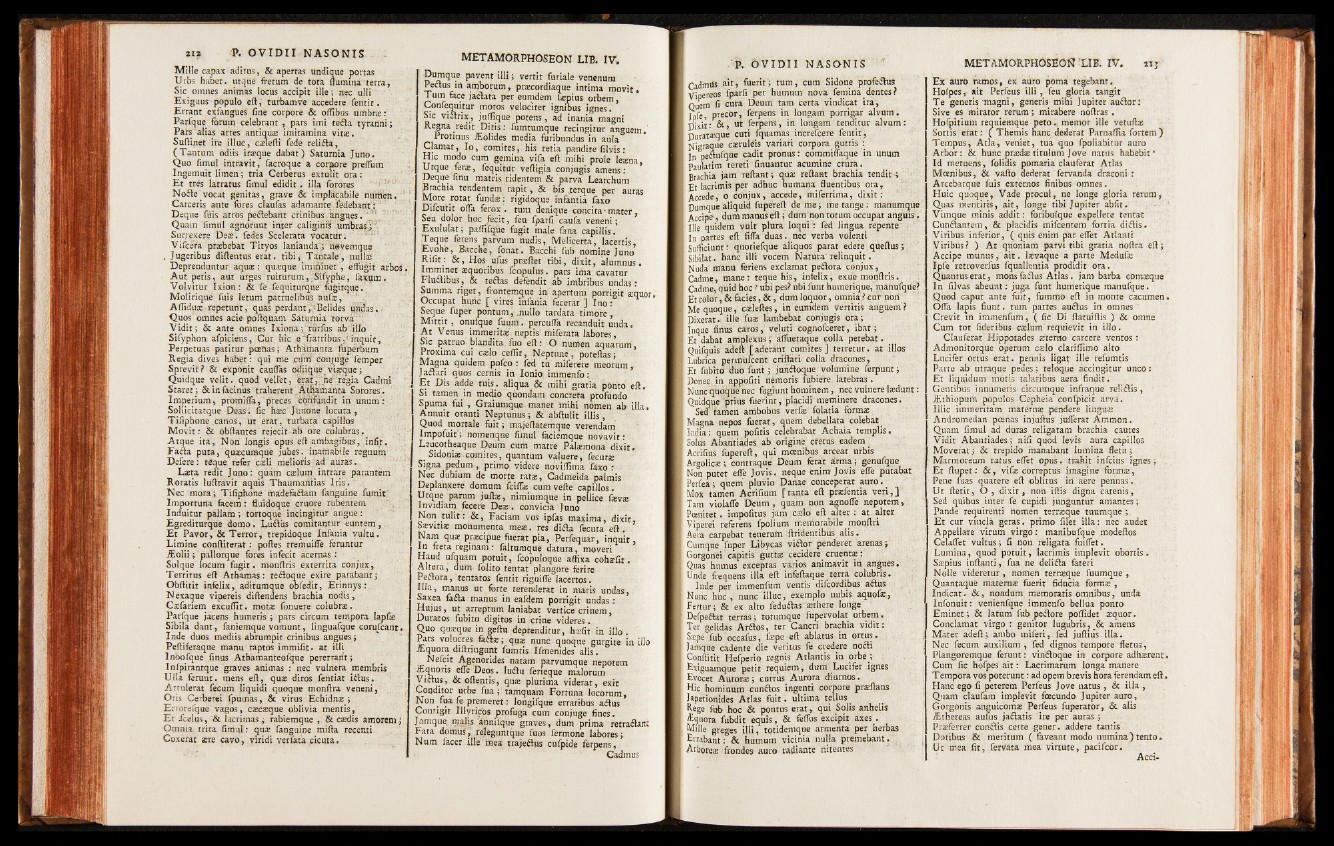 212 P. OVIDII NASONIS
Mille capax aditus, & apertas undique portas
Urbs habet. utque fretum de tota flumina terra,
Sic omnes animas locus accipit ille; nec ulli
Exiguus populo eſt, turbamve accedere ſentit.
Errant exſangues ſine corpore & oſſibus umbræ:
Parſque forum celebrant, pars imi tecta tyranni;
Pars alias artes antiquæ imitamina vitæ.
Suſtinet ire illuc, cæleſti ſede relicta,
(Tantum odiis iræque dabat) Saturnia Juno.
Quo ſimul intravit, ſacroque a corpore preſſum
Ingemuit limen; tria Cerberus extulit ora:
Et tres latratus ſimul edidit. illa ſorores
Nocte vocat genitas, grave & implacabile numen.
Carceris ante fores clauſas adamante ſedebant:
Deque ſuis atros pectebant crinibus angues.
Quam ſimul agnorunt inter caliginis umbras;
Surrexere Deæ. ſedes Scelerata vocatur.
Viſcera præbebat Tityos lanianda; novemque
Jugeribus diſtentus erat. tibi, Tantale, nullæ
Deprenduntur aquæ: quæque imminet, effugit arbos.
Aut petis, aut urges ruiturum, Siſyphe, ſaxum.
Volvitur Ixion: & ſe ſequiturque fugitque.
Molirique ſuis letum patruelibus auſæ,
Aſſiduæ repetunt, quas perdant, Belides undas.
Quos omnes acie poſtquam Saturnia torva
Vidit; & ante omnes Ixiona; rurſus ab illo
Siſyphon aſpiciens, Cur hic e fratribus, inquit,
Perpetuas patitur pœnas; Athamanta ſuperbum
Regia dives habet: qui me cum conjuge ſemper
Sprevit? & exponit cauſſas odiique viæque;
Quidque velit. quod vellet, erat, ne regia Cadmi
Staret: & in facinus traherent Athamanta Sorores.
Imperium, promiſſa, preces confundit in unum:
Sollicitatque Deas. ſic hæc Junone locuta,
Tiſiphone canos, ut erat, turbata capillos
Movit: & obſtantes rejecit ab ore colubras.
Atque ita, Non longis opus eſt ambagibus, infit.
Facta puta, quæcumque jubes. inamabile regnum
Deſere: teque refer cæli melioris ad auras.
Læta redit Juno: quam cælum intrare parantem
Roratis luſtravit aquis Thaumantias Iris.
Nec mora; Tiſiphone madefactam ſanguine ſumit
Importuna facem: fluidoque cruore rubentem
Induitur pallam; tortoque incingitur angue:
Egrediturque domo. Luctus comitantur euntem,
Et Pavor, & Terror, trepidoque Inſania vultu.
Limine conſtiterat: poſtes tremuiſſe feruntur
Æolii; pallorque fores infecit acernas:
Solque locum fugit. monſtris exterrita conjux,
Territus eſt Athamas: tectoque exire parabant;
Obſtitit infelix, aditumque obſedit, Erinnys:
Nexaque vipereis diſtendens brachia nodis,
Cæſariem excuſſit. motæ ſonuere colubræ.
Parſque jacens humeris; pars circum tempora lapſæ
Sibila dant, ſaniemque vomunt, linguaſque coruſcant.
Inde duos mediis abrumpit crinibus angues;
Peſtiferaque manu raptos immiſit. at illi
Inooſque ſinus Athamanteoſque pererrant;
Inſpirantque graves animas: nec vulnera membris
Ulla ferunt. mens eſt, quæ diros ſentiat ictus.
Attulerat ſecum liquidi quoque monſtra veneni,
Oris Cerberei ſpumas, & virus Echidnæ;
Erroreſque vagos, cæcæque oblivia mentis,
Et ſcelus, & lacrimas, rabiemque, & cædis amorem;
Omnia trita ſimul: quæ ſanguine miſta recenti
Coxerat ære cavo, viridi verſata cicuta.
METAMORPHOSEON LIB. IV.
Dumque pavent illi; vertit furiale venenum
Pectus in amborum, præcordiaque intima movit.
Tum face jactata per eumdem ſæpius orbem,
Conſequitur motos velociter ignibus ignes.
Sic victrix, juſſique potens, ad inania magni
Regna redit Ditis: ſumtumque recingitur anguem.
Protinus Æolides media furibundus in aula
Clamat, Io, comites, his retia pandite ſilvis:
Hic modo cum gemina viſa eſt mihi prole leæna,
Utque feræ, ſequitur veſtigia conjugis amens:
Deque ſinu matris ridentem & parva Learchum
Brachia tendentem rapit, & bis terque per auras
More rotat fundæ: rigidoque infantia ſaxo
Diſcutit oſſa ferox. tum denique concita mater,
Seu dolor hoc fecit, ſeu ſparſi cauſa veneni;
Exululat; paſſiſque fugit male ſana capillis.
Teque ferens parvum nudis, Melicerta, lacertis,
Evohe, Bacche, ſonat. Bacchi ſub nomine Juno
Riſit: &, Hos uſus præſtet tibi, dixit, alumnus.
Imminet æquoribus ſcopulus. pars ima cavatur
Fluctibus, & tectas defendit ab imbribus undas:
Summa riget, frontemque in apertum porrigit æquor.
Occupat hunc [ vires inſania fecerat ] Ino:
Seque ſuper pontum, nullo tardata timore,
Mittit, onuſque ſuum. percuſſa recanduit unda.
At Venus, immeritæ neptis miſerata labores,
Sic patruo blandita ſuo eſt: O numen aquarum,
Proxima cui cælo ceſſit, Neptune, poteſtas;
Magna quidem poſco: ſed tu miſerere meorum,
Jactari quos cernis in Ionio immenſo:
Et Dis adde tuis. aliqua & mihi gratia ponto eſt.
Si tamen in medio quondam concreta profundo
Spuma fui, Graiumque manet mihi nomen ab illa.
Annuit oranti Neptunus; & abſtulit illis,
Quod mortale fuit; majeſtatemque verendam
Impoſuit; nomenque ſimul faciemque novavit:
Leucotheaque Deum cum matre Palæmona dixit.
Sidoniæ comites, quantum valuere, ſecutæ
Signa pedum, primo videre noviſſima ſaxo:
Nec dubium de morte ratæ, Cadmeida palmis
Deplanxere domum ſciſſæ cum veſte capillos.
Utque parum juſtæ, nimiumque in pellice ſævæ
Invidiam fecere Deæ. convicia Juno
Non tulit: &, Faciam vos ipſas maxima, dixit,
Sævitiæ monumenta meæ. res dicta ſecuta eſt.
Nam quæ præcipue fuerat pia, Perſequar, inquit,
In freta reginam: ſaltumque datura, moveri
Haud uſquam potuit, ſcopuloque affixa cohæſit.
Altera, dum ſolito tentat plangore ferire
Pectora, tentatos ſentit riguiſſe lacertos.
Illa, manus ut forte tetenderat in maris undas,
Saxea facta manus in eaſdem porrigit undas:
Hujus, ut arreptum laniabat vertice crinem,
Duratos ſubito digitos in crine videres.
Quo quæque in geſtu deprenditur, hæſit in illo.
Pars volucres factæ; quæ nunc quoque gurgite in illo
Æquora diſtringunt ſumtis Iſmenides alis.
Neſcit Agenorides natam parvumque nepotem
Æquoris eſſe Deos. luctu ſerieque malorum
Victus, & oſtentis, quæ plurima viderat, exit
Conditor urbe ſua; tamquam Fortuna locorum,
Non ſua ſe premeret: longiſque erratibus actus
Contigit Illyricos profuga cum conjuge fines.
Jamque malis anniſque graves, dum prima retractant
Fata domus, releguntque ſuos ſermone labores;
Num ſacer ille mea trajectus cuſpide ſerpens,
Cadmus
P. OVIDII NASONIS
Cadmus ait, fuerit; tum, cum Sidone profectus
Vipereos ſparſi per humum nova ſemina dentes?
Quem ſi cura Deum tam certa vindicat ira,
Ipſe, precor, ſerpens in longam porrigar alvum.
Dixit: &, ut ſerpens, in longam tenditur alvum:
Duratæque cuti ſquamas increſcere ſentit,
Nigraque cæruleis variari corpora guttis:
In pectuſque cadit pronus: commiſſaque in unum
Paulatim tereti ſinuantur acumine crura.
Brachia jam reſtant; quæ reſtant brachia tendit;
Et lacrimis per adhuc humana fluentibus ora,
Accede, o conjux, accede, miſerrima, dixit:
Dumque aliquid ſupereſt de me; me tange: manumque
Accipe, dum manus eſt; dum non totum occupat anguis.
Ille quidem vult plura loqui: ſed lingua repente
In partes eſt fiſſa duas. nec verba volenti
Sufficiunt: quotieſque aliquos parat edere queſtus;
Sibilat. hanc illi vocem Natura relinquit.
Nuda manu feriens exclamat pectora conjux,
Cadme, mane: teque his, infelix, exue monſtris.
Cadme, quid hoc? ubi pes? ubi ſunt humerique, manuſque?
Et color, & facies, &, dum loquor, omnia? cur non
Me quoque, cæleſtes, in eumdem vertitis anguem?
Dixerat. ille ſuæ lambebat conjugis ora;
Inque ſinus caros, veluti cognoſceret, ibat;
Et dabat amplexus; aſſuetaque colla petebat.
Quiſquis adeſt [ aderant comites ] terretur. at illos
Lubrica permulcent criſtati colla dracones,
Et ſubito duo ſunt; junctoque volumine ſerpunt;
Donec in appoſiti nemoris ſubiere latebras.
Nunc quoque nec fugiunt hominem, nec vulnere lædunt:
Quidque prius fuerint, placidi meminere dracones.
Sed tamen ambobus verſæ ſolatia formæ
Magna nepos fuerat, quem debellata colebat
India: quem poſitis celebrabat Achaia templis.
Solus Abantiades ab origine cretus eadem
Acriſius ſupereſt, qui mœnibus arceat urbis
Argolicæ; contraque Deum ferat arma; genuſque
Non putet eſſe Jovis. neque enim Jovis eſſe putabat
Perſea; quem pluvio Danae conceperat auro.
Mox tamen Acriſium [ tanta eſt præſentia veri, ]
Tam violaſſe Deum, quam non agnoſſe nepotem,
Pœnitet. impoſitus jam cælo eſt alter: at alter
Viperei referens ſpolium memorabile monſtri
Aera carpebat tenerum ſtridentibus alis.
Cumque ſuper Libycas victor penderet arenas;
Gorgonei capitis guttæ cecidere cruentæ:
Quas humus exceptas varios animavit in angues.
Unde frequens illa eſt infeſtaque terra colubris.
Inde per immenſum ventis diſcordibus actus
Nunc huc, nunc illuc, exemplo nubis aquoſæ,
Fertur; & ex alto ſeductas æthere longe
Deſpectat terras; totumque ſupervolat orbem.
Ter gelidas Arctos, ter Cancri brachia vidit:
Sæpe ſub occaſus, ſæpe eſt ablatus in ortus.
Jamque cadente die veritus ſe credere nocti
Conſtitit Heſperio regnis Atlantis in orbe;
Exiguamque petit requiem, dum Lucifer ignes
Evocet Auroræ; currus Aurora diurnos.
Hic hominum cunctos ingenti corpore præſtans
Japetionides Atlas fuit. ultima tellus
Rege ſub hoc & pontus erat, qui Solis anhelis
Æquora ſubdit equis, & feſſos excipit axes.
Mille greges illi, totidemque armenta per herbas
Errabant: & humum vicinia nulla premebant.
Arboreæ frondes auro radiante nitentes
METAMORPHOSEON LIB. IV. 213
Ex auro ramos, ex auro poma tegebant.
Hoſpes, ait Perſeus illi, ſeu gloria tangit
Te generis magni, generis mihi Jupiter auctor:
Sive es mirator rerum; mirabere noſtras.
Hoſpitium requiemque peto. memor ille vetuſtæ
Sortis erat: ( Themis hanc dederat Parnaſſia ſortem )
Tempus, Atla, veniet, tua quo ſpoliabitur auro
Arbor: & hunc prædæ titulum Jove natus habebit.
Id metuens, ſolidis pomaria clauſerat Atlas
Mœnibus, & vaſto dederat ſervanda draconi:
Arcebatque ſuis externos finibus omnes.
Huic quoque, Vade procul, ne longe gloria rerum,
Quas mentiris, ait, longe tibi Jupiter abſit.
Vimque minis addit: foribuſque expellere tentat
Cunctantem, & placidis miſcentem fortia dictis.
Viribus inferior, ( quis enim par eſſet Atlanti
Viribus? ) At quoniam parvi tibi gratia noſtra eſt;
Accipe munus, ait. lævaque a parte Meduſæ
Ipſe retroverſus ſquallentia prodidit ora.
Quantus erat, mons factus Atlas. jam barba comæque
In ſilvas abeunt: juga ſunt humerique manuſque.
Quod caput ante fuit, ſummo eſt in monte cacumen.
Oſſa lapis fiunt. tum partes auctus in omnes
Crevit in immenſum, ( ſic Di ſtatuiſtis ) & omne
Cum tot ſideribus cælum requievit in illo.
Clauſerat Hippotades æterno carcere ventos:
Admonitorque operum cælo clariſſimo alto
Lucifer ortus erat. pennis ligat ille reſumtis
Parte ab utraque pedes; teloque accingitur unco:
Et liquidum motis talaribus aera findit.
Gentibus innumeris circumque infraque relictis,
Æthiopum populos Cepheia conſpicit arva.
Illic immeritam maternæ pendere linguæ
Andromedan pœnas injuſtus juſſerat Ammon.
Quam ſimul ad duras religatam brachia cautes
Vidit Abantiades; niſi quod levis aura capillos
Moverat; & trepido manabant lumina fletu;
Marmoreum ratus eſſet opus. trahit inſcius ignes;
Et ſtupet: &, viſæ correptus imagine formæ,
Pene ſuas quatere eſt oblitus in aere pennas.
Ut ſtetit, O, dixit, non iſtis digna catenis,
Sed quibus inter ſe cupidi junguntur amantes;
Pande requirenti nomen terræque tuumque;
Et cur vincla geras. primo ſilet illa: nec audet
Appellare virum virgo: manibuſque modeſtos
Celaſſet vultus; ſi non religata fuiſſet.
Lumina, quod potuit, lacrimis implevit obortis.
Sæpius inſtanti, ſua ne delicta fateri
Nolle videretur, nomen terræque ſuumque,
Quantaque maternæ fuerit fiducia formæ,
Indicat. &, nondum memoratis omnibus, unda
Inſonuit: venienſque immenſo bellua ponto
Eminet; & latum ſub pectore poſſidet æquor.
Conclamat virgo: genitor lugubris, & amens
Mater adeſt; ambo miſeri, ſed juſtius illa.
Nec ſecum auxilium, ſed dignos tempore fletus,
Plangoremque ferunt: vinctoque in corpore adhærent.
Cum ſic hoſpes ait: Lacrimarum longa manere
Tempora vos poterunt: ad opem brevis hora ferendam eſt.
Hanc ego ſi peterem Perſeus Jove natus, & illa,
Quam clauſam implevit fœcundo Jupiter auro,
Gorgonis anguicomæ Perſeus ſuperator, & alis
Æthereas auſus jactatis ire per auras;
Præferrer cunctis certe gener. addere tantis
Dotibus & meritum ( faveant modo numina ) tento.
Ut mea ſit, ſervata mea virtute, paciſcor.
Acci-